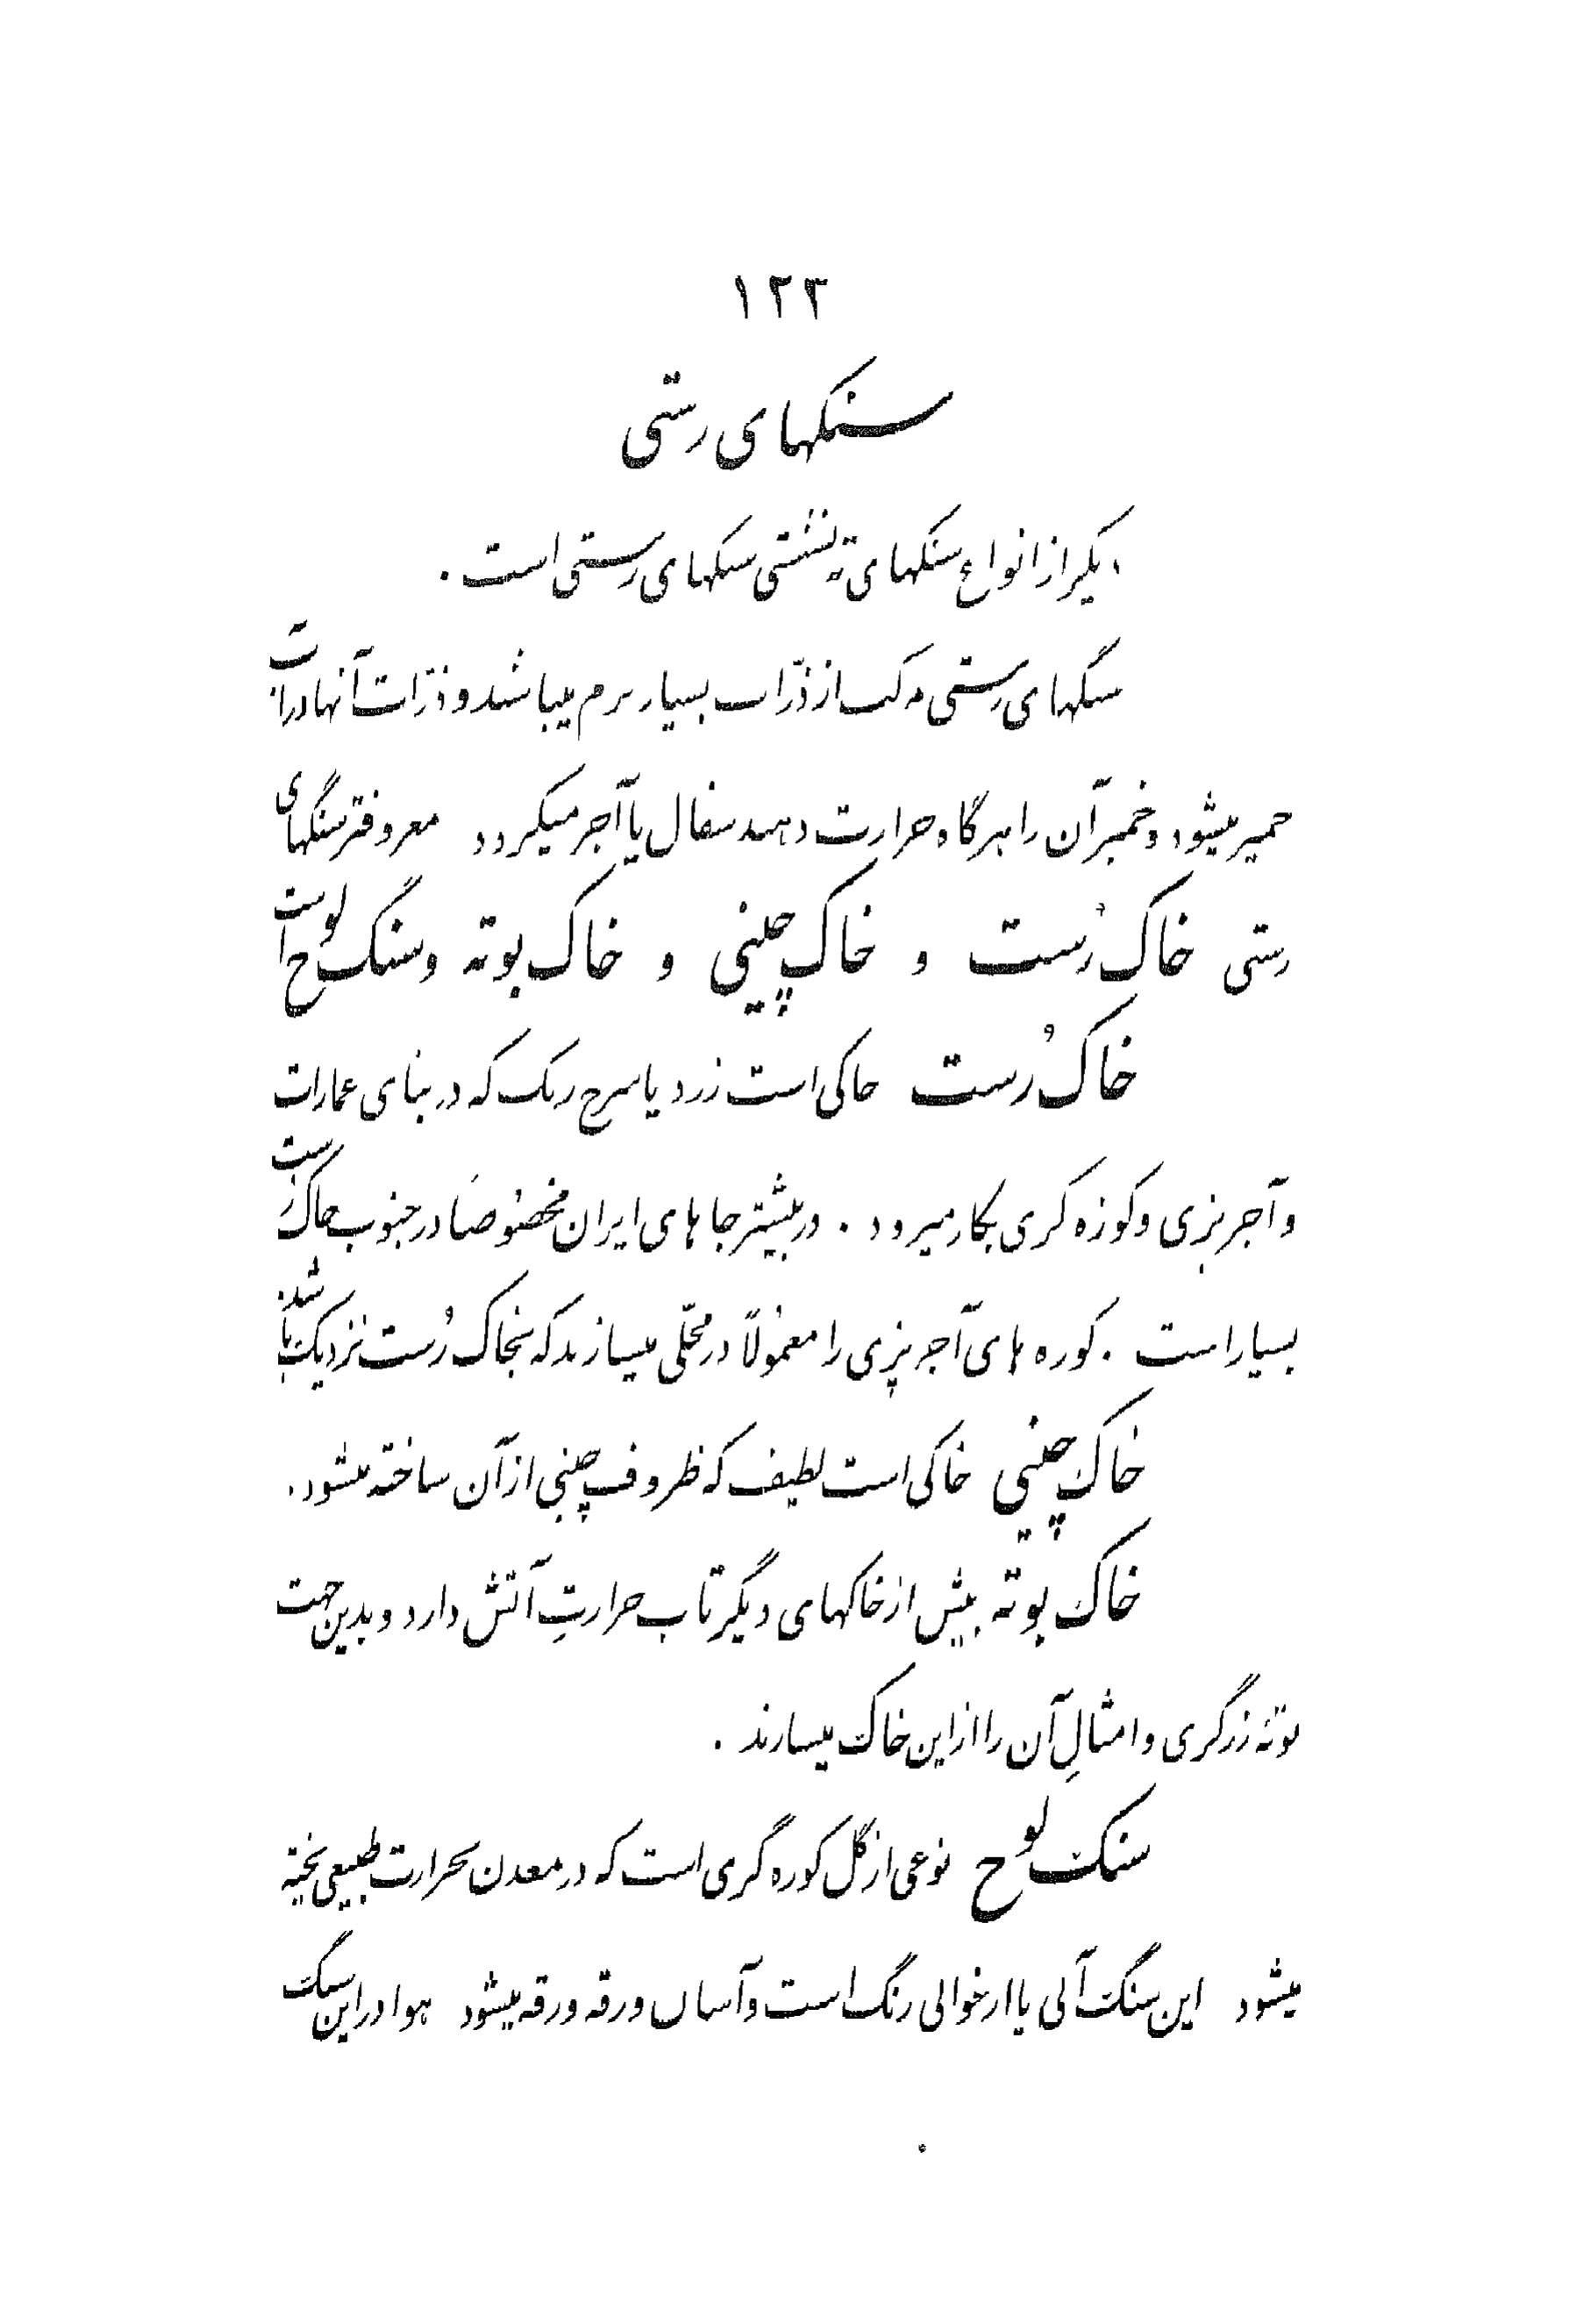 ۱۲۳
سنگهای رستی
دیگر از انواع سنگهای ته نشستی سنگهای رستی است .
سنگهای رستی مرکب از ذرّات بسیار نرم میباشد و ذرّات آنها در آب
خمیر میشود و خمیر آن را هرگاه حرارت دهند سفال یا آجر میگردد معروفتر سنگهای
رستی خاک رُست و خاک چینی و خاک بوته و سنگ لوح است
خاک رُست خاکی است زرد یا سرخ رنگ که در بنای عمارات
و آجرپزی و کوزه گری بکار میرود . در بیشتر جاهای ایران مخصوصاً در جنوب خاک رست
بسیار است . کوره های آجرپزی را معمولاً در محلّی میسازند که بخاک رُست نزدیک باشد
خاک چینی خاکی است لطیف که ظروف چینی از آن ساخته میشود .
خاک بوته بیش از خاکهای دیگر تاب حرارتِ آتش دارد و بدین جهت
بوتهٔ زرگری و امثالِ آن را از این خاک میسازند .
سنگ لوح نوعی از گل کوزه گری است که در معدن بحرارت طبیعی پخته
میشود این سنگ آبی یا ارغوانی رنگ است و آسان ورقه ورقه میشود هوا در این سنگ